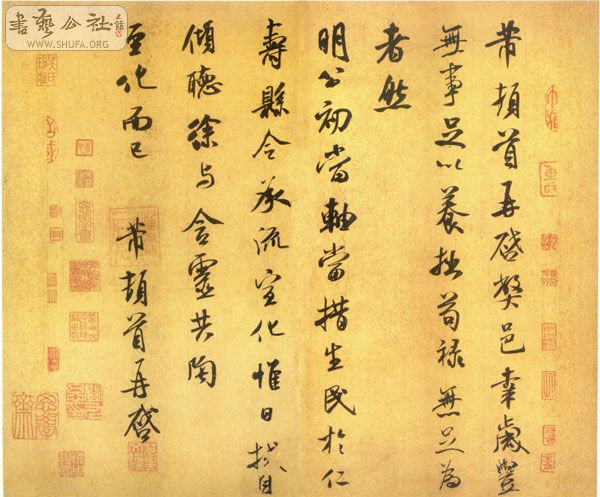 芾頓首再啓弊邑幸歲豐
無事足以養拙苟祿無足為
者然
明公初當軸當措生民於仁
壽縣令承流宣化惟日拭目
傾聽徐与含靈共陶
至化而已
芾頓首再啓
書藝公社
WWW.SHUFA.ORG